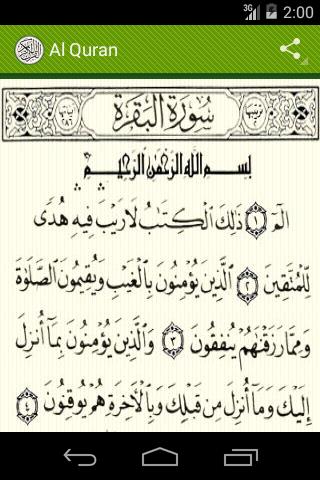 3G 2:00
Al Quran
سُورَةُ الْبَقَرَةِ
بِسْمِ اللَّهِ الرَّحْمَٰنِ الرَّحِيمِ
الٓمٓ ﴿١﴾ ذَٰلِكَ الْكِتَٰبُ لَارَيْبَ فِيهِ هُدًى
لِّلْمُتَّقِينَ ﴿٢﴾ الَّذِينَ يُؤْمِنُونَ بِالْغَيْبِ وَيُقِيمُونَ الصَّلَوٰةَ
وَمِمَّا رَزَقْنَٰهُمْ يُنفِقُونَ ﴿٣﴾ وَالَّذِينَ يُؤْمِنُونَ بِمَآ أُنزِلَ
إِلَيْكَ وَمَآ أُنزِلَ مِن قَبْلِكَ وَبِالْآخِرَةِ هُمْ يُوقِنُونَ ﴿٤﴾